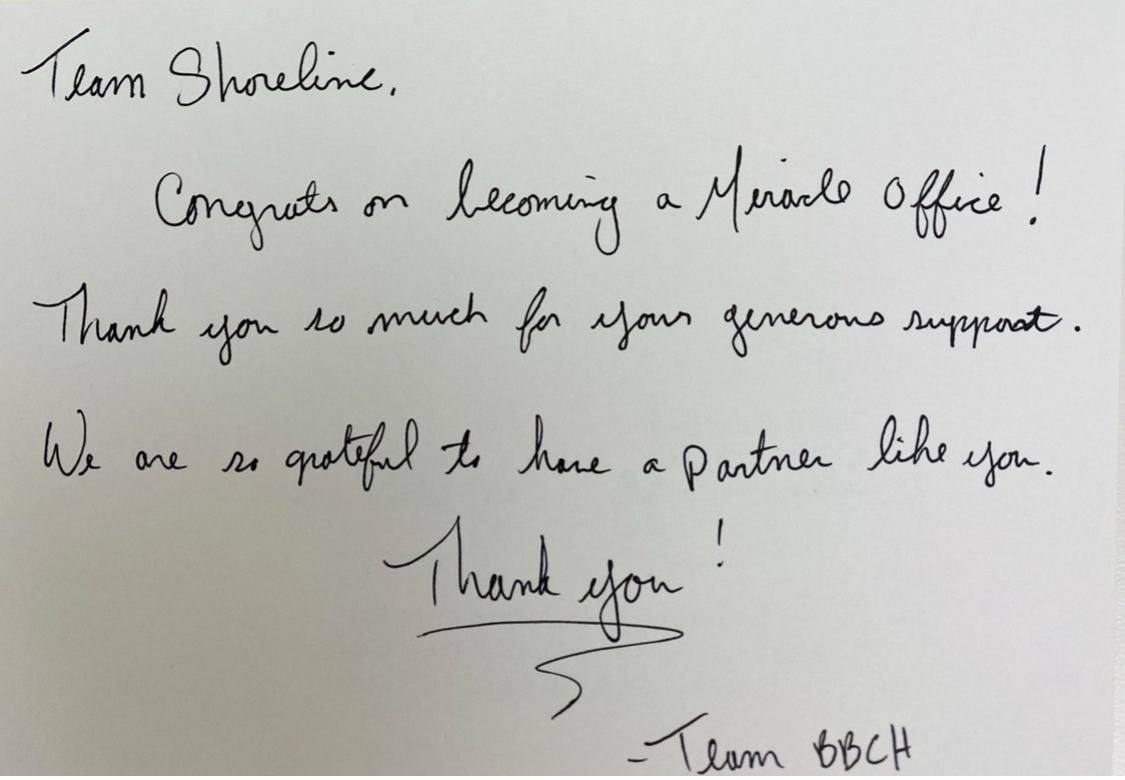 Team Shoreline,
Congrats on becoming a Miracle Office!
Thank you so much for your generous support.
We are so grateful to have a partner like you.
Thank you!
-Team BBCH